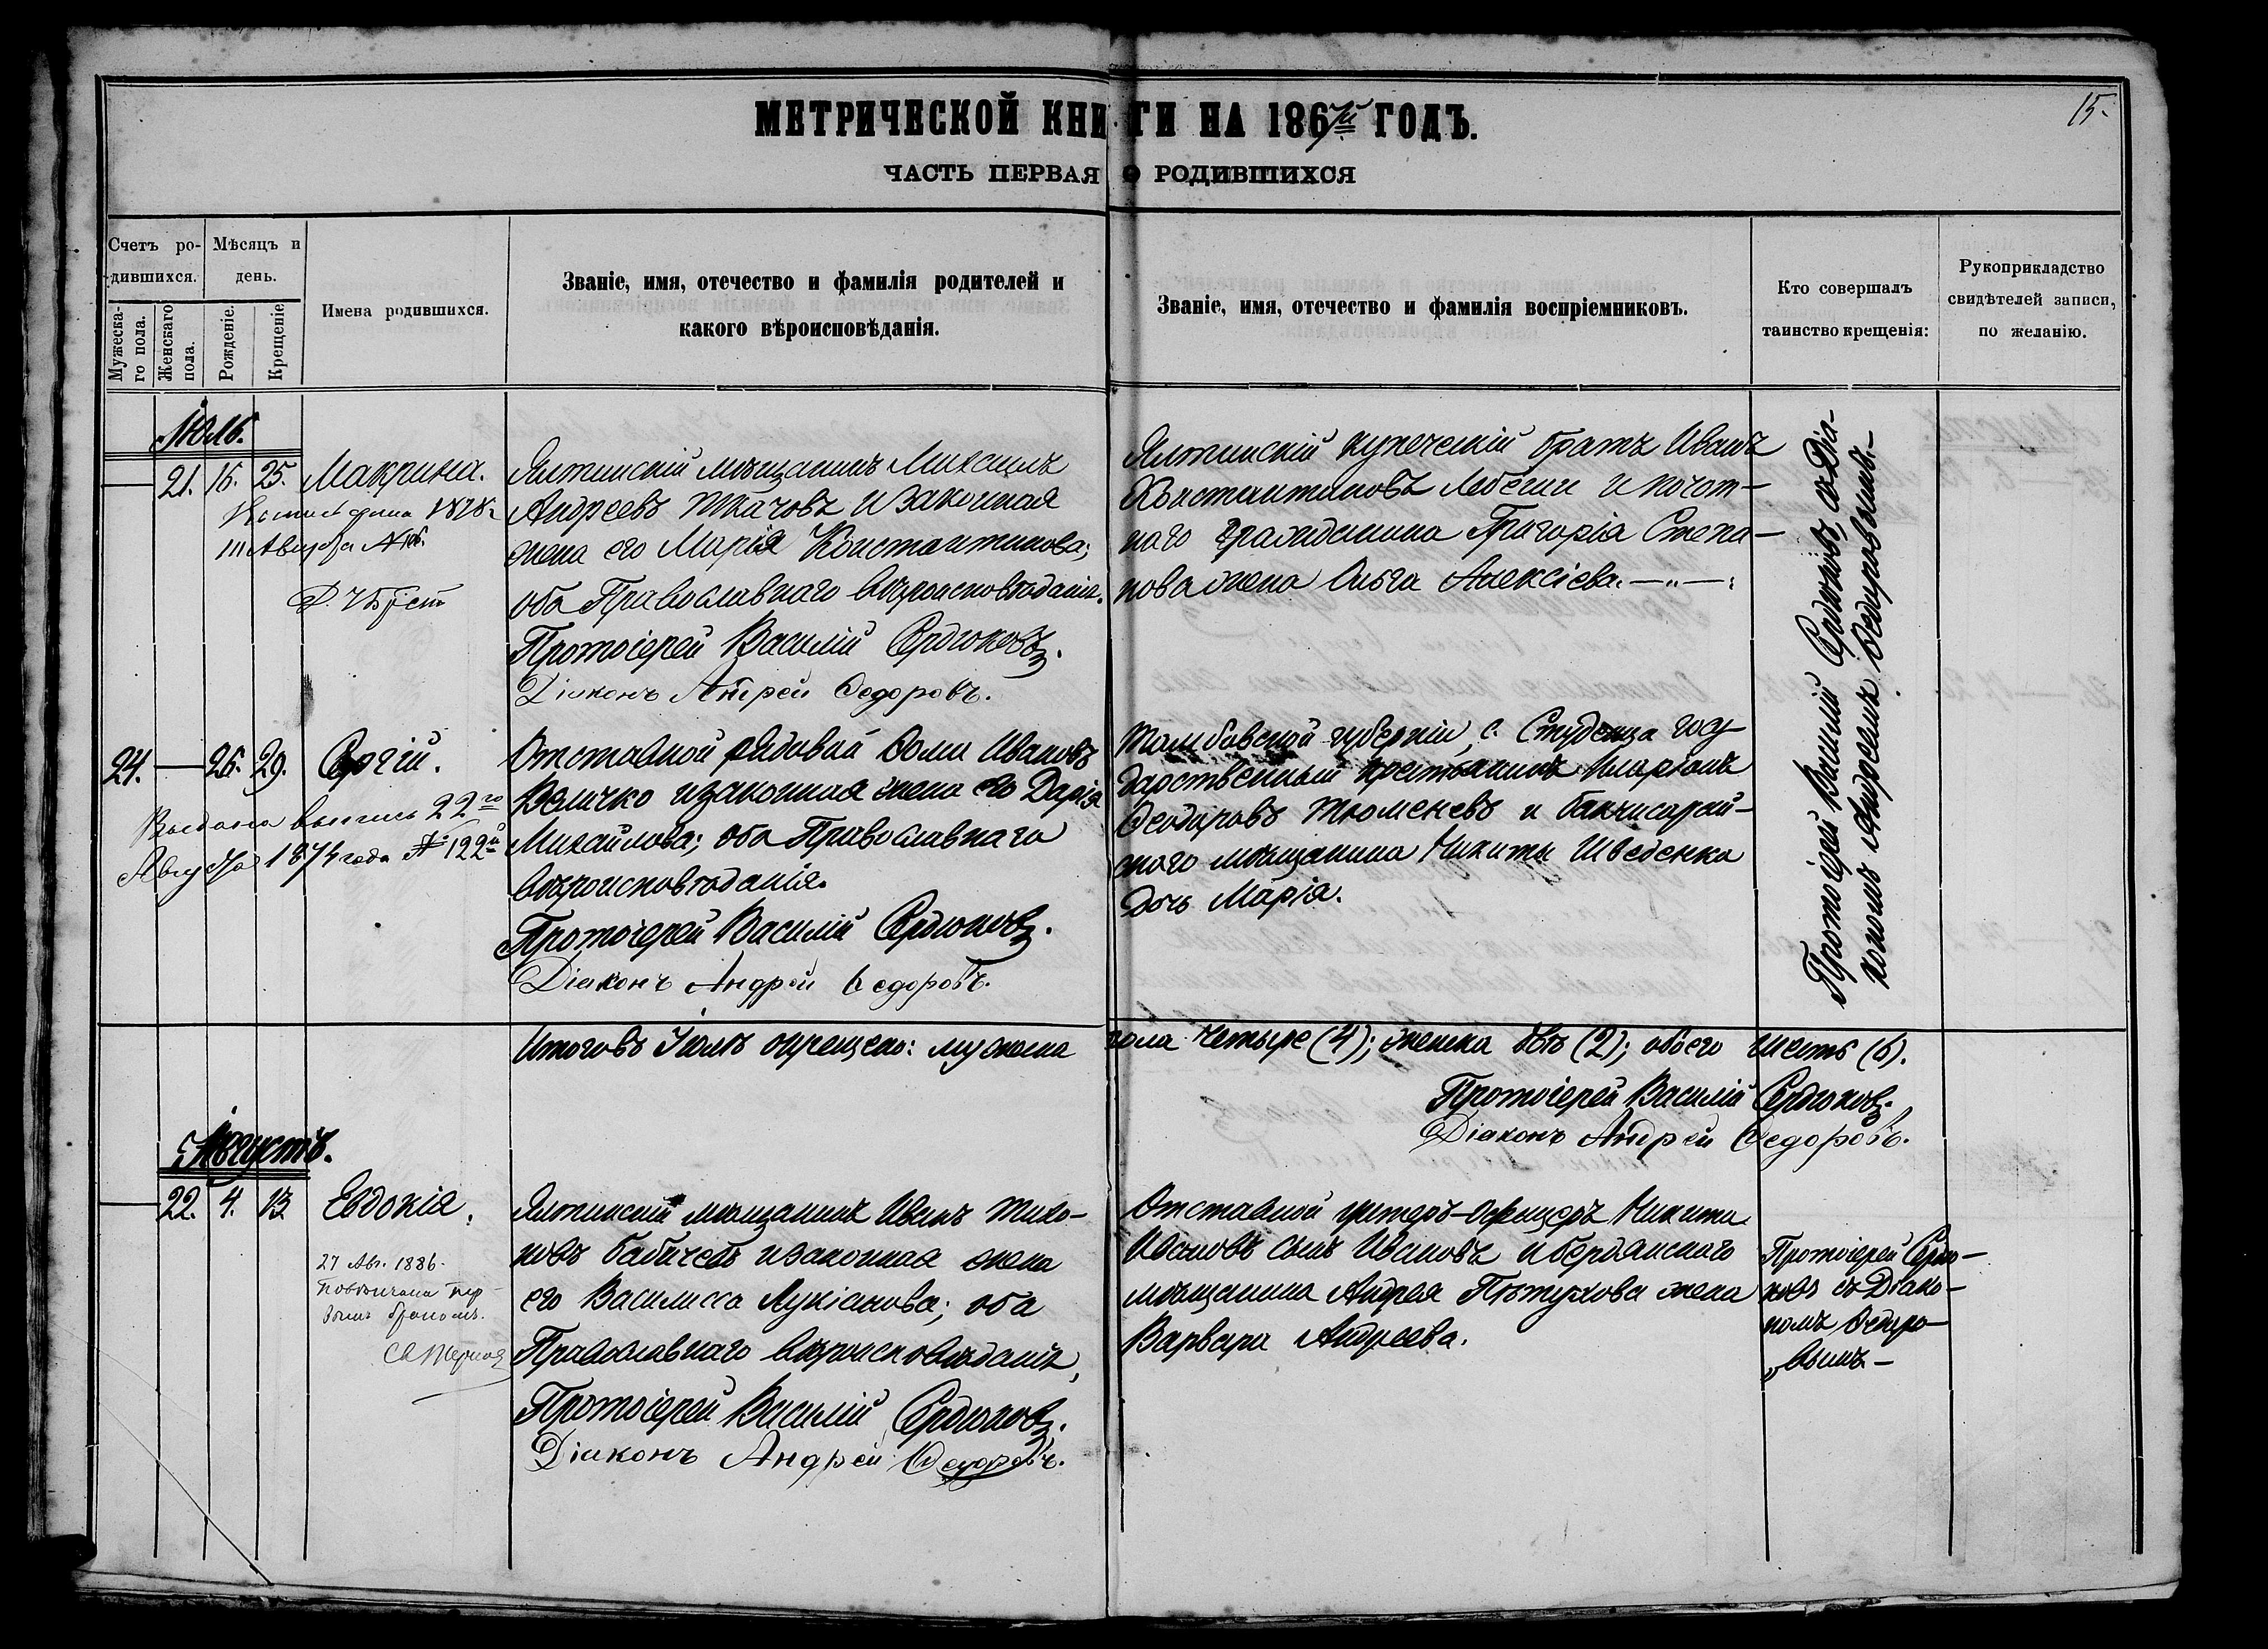 15.
МЕТРИЧЕСКОЙ КНИГИ НА 1867й ГОДЪ.
ЧАСТЬ ПЕРВАЯ О РОДИВШИХСЯ
Счетъ ро-
дившихся.
Мужеска-
го пола.
Женскаго
пола.
Мѣсяцъ и
день.
Рожденіе.
Крещеніе
Имена родившихся.
Званіе, имя, отечество и фамилія родителей и
какого вѣроисповѣданія.
Званіе, имя, отечество и фамилія воспріемниковъ.
Кто совершалъ
таинство крещенія:
Рукоприкладство
свидѣтелей записи,
по желанію.
Іюль.
21. 16. 25. Макрина.
1878
Августа
Ялтинскій мѣщанинъ Михаилъ
Андреевъ Ткачовъ и законная
жена его Марія Константинова;
оба Православнаго вѣроисповѣданія.
Протоіерей Василій Сердюковъ.
Діаконъ Андрей Ѳедоровъ.
Ялтинскій купеческій братъ Иванъ
Константиновъ и почот-
наго гражданина Григорія Степа-
нова жена Ольга Алексіева.
Протоіерей Василій Сердюковъ, съ Діа-
кономъ Андреемъ Ѳедоровымъ.
24. — 26. 29. Сергій.
Выдана выпись 22го
Августа 1874 года № 122й
Отставной рядовой Ѳома Ивановъ
Величко и законная жена его Дарія
Михайлова; оба Православнаго
вѣроисповѣданія.
Протоіерей Василій Сердюковъ.
Діаконъ Андрей Ѳедоровъ.
Тамбовской губерніи, с. Студенца госу-
дарственный крестьянинъ Иларіонъ
Ѳеодоровъ Тюменевъ и бакчисарай-
скаго мѣщанина Никиты Шведенка
дочь Марія.
Итого въ Іюлѣ окрещено: мужеска пола четыре (4); женска двѣ (2); обоего шесть (6).
Протоіерей Василій Сердюковъ.
Діаконъ Андрей Ѳедоровъ.
Августъ.
22. 4. 13. Евдокія.
27 Авг. 1886.
Повѣнчана пер-
вымъ бракомъ.
Ялтинскій мѣщанинъ Иванъ Тихо-
новъ Бабичевъ и законная жена
его Василисса Лукіанова; оба
Православнаго вѣроисповѣданія,
Протоіерей Василій Сердюковъ.
Діаконъ Андрей Ѳедоровъ.
Отставной унтеръ-офицеръ Никита
Ивановъ сынъ Ивановъ и бердянскаго
мѣщанина Андрея Пѣтухова жена
Варвара Андреева.
Протоіерей Сердю-
ковъ съ Діако-
номъ Ѳедоро-
вымъ —